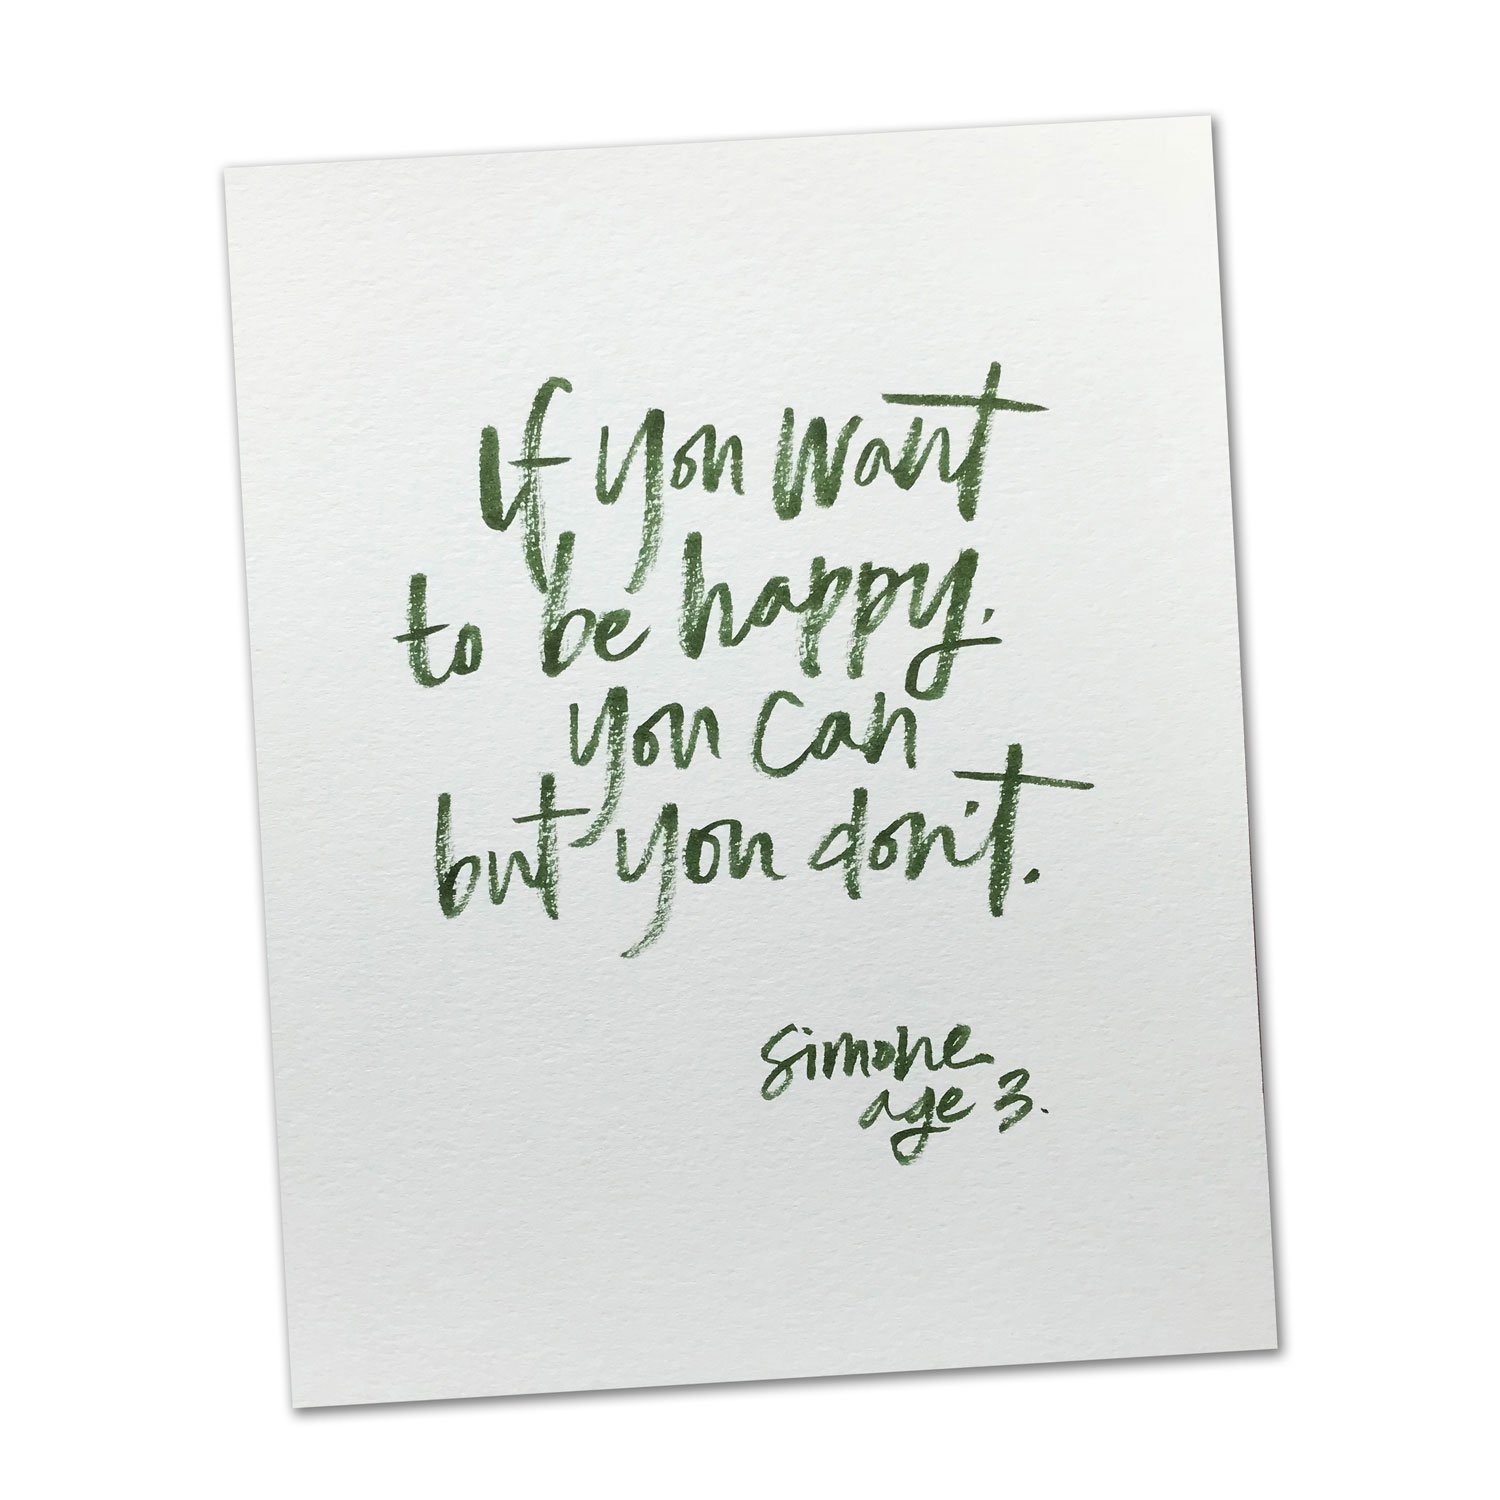 If you want
to be happy,
you can
but you don't.
simone
age 3.